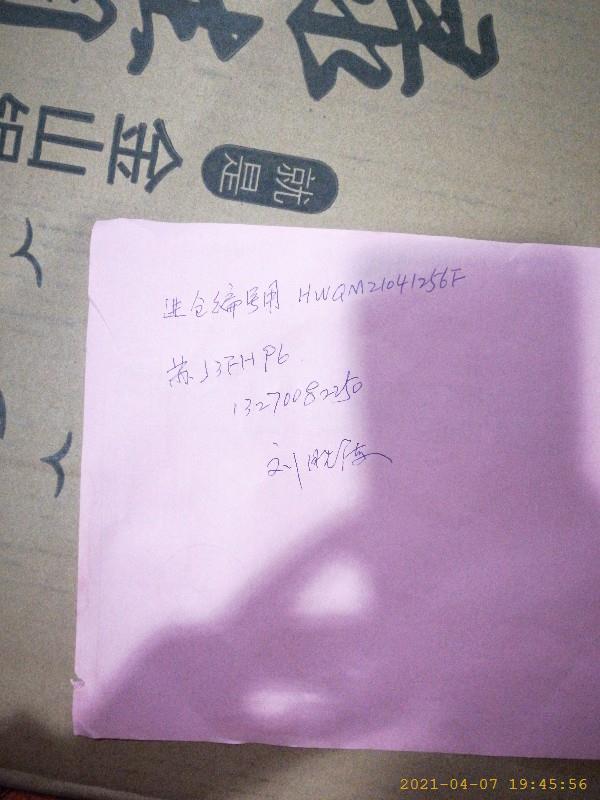 金山
就是
进仓编号用 HWQM21041256F
苏J3FHP6
13270082250
刘
2021-04-07 19:45:56